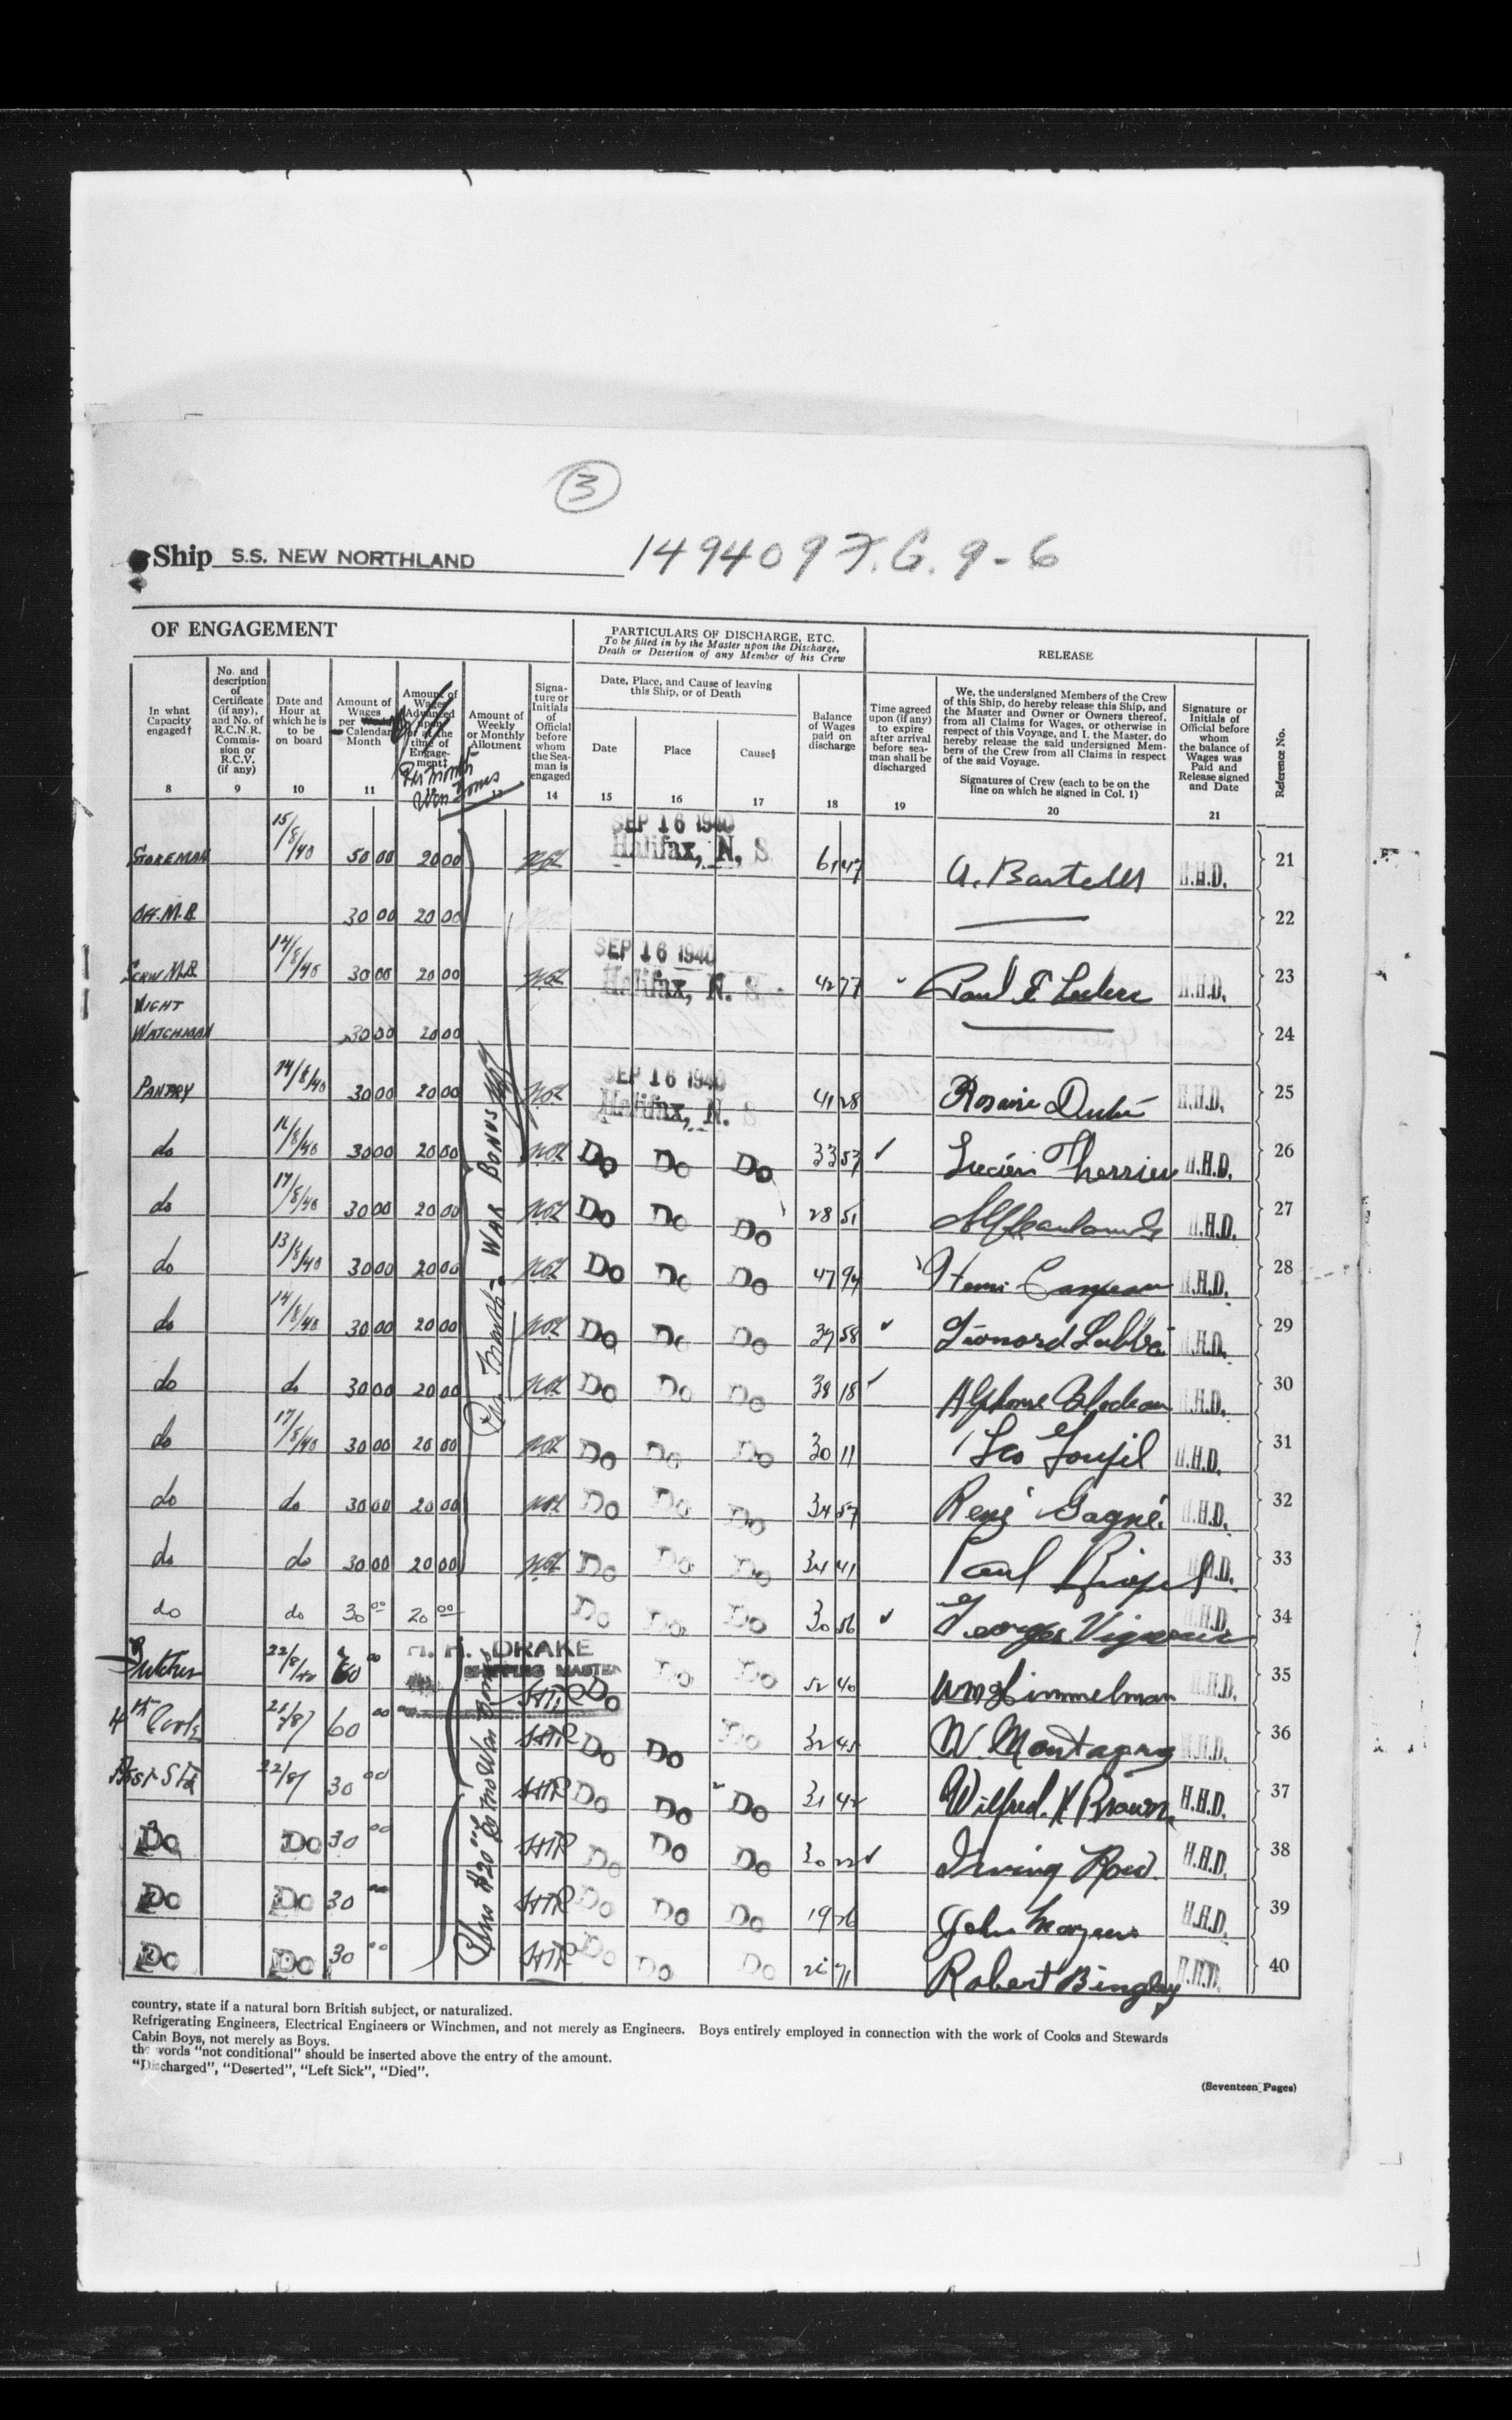 3
Ship S.S. NEW NORTHLAND 149409 F.G. 9-6
OF ENGAGEMENT
PARTICULARS OF DISCHARGE, ETC.
To be filled in by the Master upon the Discharge,
Death or Desertion of any Member of his Crew
RELEASE
In what Capacity engaged†
8
No. and description of Certificate (if any), and No. of R.C.N.R. Commission or R.C.V. (if any)
9
Date and Hour at which he is to be on board
10
Amount of Wages per Calendar Month
11
Amount of Wages Advanced upon or at the time of Engagement‡
Per Month War Bonus
Amount of Weekly or Monthly Allotment
13
Signature or Initials of Official before whom the Seaman is engaged
14
Date, Place, and Cause of leaving this Ship, or of Death
Date
15
Place
16
Cause§
17
Balance of Wages paid on discharge
18
Time agreed upon (if any) to expire after arrival before seaman shall be discharged
19
We, the undersigned Members of the Crew
of this Ship, do hereby release this Ship, and
the Master and Owner or Owners thereof,
from all Claims for Wages, or otherwise in
respect of this Voyage, and I, the Master, do
hereby release the said undersigned Members of the Crew from all Claims in respect
of the said Voyage.
Signatures of Crew (each to be on the line on which he signed in Col. 1)
20
Signature or Initials of Official before whom the balance of Wages was Paid and Release signed and Date
21
Reference No.
STOREMAN 15/8/40 50 00 20 00 SEP 16 1940 Halifax, N. S. 61 47 A. Bartells H.H.D. 21
OFF. M.R. 30 00 20 00 22
CREW M.R. 14/8/40 30 00 20 00 SEP 16 1940 Halifax, N. S. 42 77 Paul E Leclerc H.H.D. 23
NIGHT
WATCHMAN 30 00 20 00 24
PANTRY 14/8/40 30 00 20 00 SEP 16 1940 Halifax, N. 41 28 Rosaire Dubé H.H.D. 25
do 30 00 20 00 Do Do Do 33 57 Lucien Therrien H.H.D. 26
do 17/8/40 30 00 20 00 Do Do Do 28 51 H.H.D. 27
do 13/8/40 30 00 20 00 Do Do Do 47 94 Henri H.H.D. 28
do 14/8/40 30 00 20 00 Do Do Do 58 Léonard Labbé H.H.D. 29
do do 30 00 20 00 Do Do Do 38 18 Alphonse H.H.D. 30
do 17/8/40 30 00 20 00 Do Do Do 30 11 Leo Goupil H.H.D. 31
do do 30 00 20 00 Do Do Do 34 57 René Gagné H.H.D. 32
do do 30 00 20 00 Do Do Do 34 41 Paul H.H.D. 33
do do 30 00 20 00 Do Do Do 30 56 Georges Vigneau H.H.D. 34
Per Month War Bonus
H. H. DRAKE
SHIPPING MASTER
Butcher 22/8/40 60 00 HHR Do Do Do 52 40 Wm Himmelman H.H.D. 35
4th Cook 60 00 HHR Do Do Do 32 45 W. Montague H.H.D. 36
Asst Std 22/8/ 30 00 HHR Do Do Do 31 42 Wilfred. Brown H.H.D. 37
Do Do 30 00 HHR Do Do Do 30 22 Irving H.H.D. 38
Do Do 30 00 HHR Do Do Do 19 76 John H.H.D. 39
Do Do 30 00 HHR Do Do Do 71 Robert Bingley H.H.D. 40
Plus $20 00 Per mo War Bonus
country, state if a natural born British subject, or naturalized.
Refrigerating Engineers, Electrical Engineers or Winchmen, and not merely as Engineers. Boys entirely employed in connection with the work of Cooks and Stewards
Cabin Boys, not merely as Boys.
the words "not conditional" should be inserted above the entry of the amount.
"Discharged", "Deserted", "Left Sick", "Died".
(Seventeen Pages)